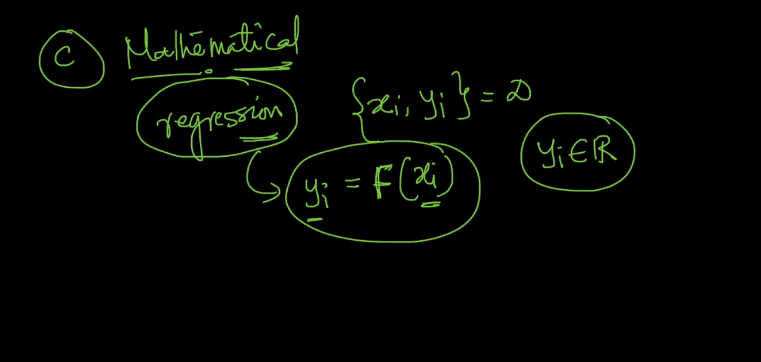 C Mathematical
regression {xi, yi} = D
yi = F(xi) yi ∈ ℝ